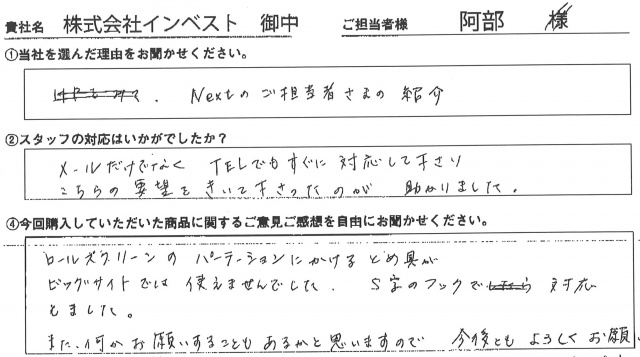 貴社名 株式会社インベスト 御中 ご担当者様 阿部 様
①当社を選んだ理由をお聞かせください。
. Nextのご担当者さまの紹介
②スタッフの対応はいかがでしたか?
メールだけでなく TELでもすぐに対応して下さり
こちらの要望をきいて下さったのが 助かりました。
④今回購入していただいた商品に関するご意見ご感想を自由にお聞かせください。
ロールスクリーンの パーテーションにかけるとめ具が
ビッグサイトでは 使えませんでした. S字のフックで 対応
しました。
また、何かお願いすることもあるかと思いますので 今後とも よろしくお願い